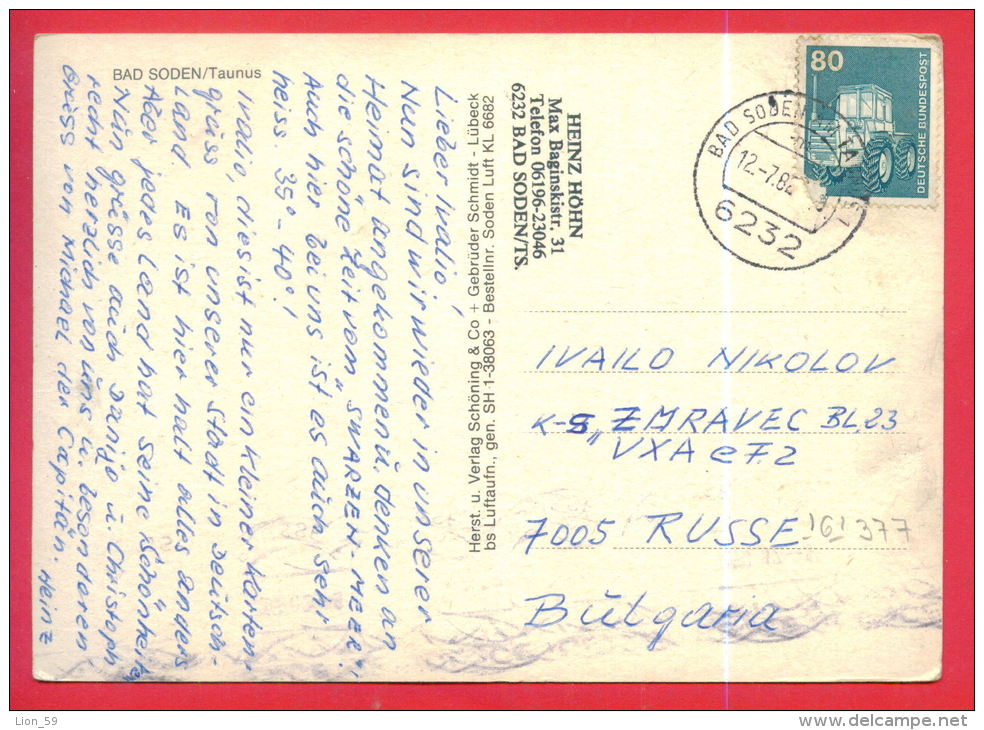 BAD SODEN/Taunus
Lieber Ivalio,
Nun sind wir wieder in unserer
Heimat angekommen ü. denken an
die schöne Zeit vom „SWARZEN-MEER".
Auch hier bei uns ist es auch sehr
heiss 35°-40°!
Ivalio, dies ist nur ein kleiner Karten-
grüss von unserer Stadt in Deutsch-
Land. Es ist hier halt alles anders
Aber jedes Land hat seine Schönheit,
Nün grüsse auch Danijo ü. Christoph
recht herzlich von üns ü. besonderen
Grüss von Michael der Capitän.
Heinz
Herst. u. Verlag Schöning & Co + Gebrüder Schmidt - Lübeck
bs Luftaufn., gen. SH 1-38063 - Bestellnr. Soden Luft KL 6682
HEINZ HÖHN
Max Baginskistr. 31
Telefon 06196-23046
6232 BAD SODEN/TS.
80
DEUTSCHE BUNDESPOST
BAD SODEN
12.-7.82
6232
IVAILO NIKOLOV
K-S „ZMRAVEC BL.23
VXA e7.2
7005 RUSSE
161377
Bülgaria
Lion_59
www.delcampe.net